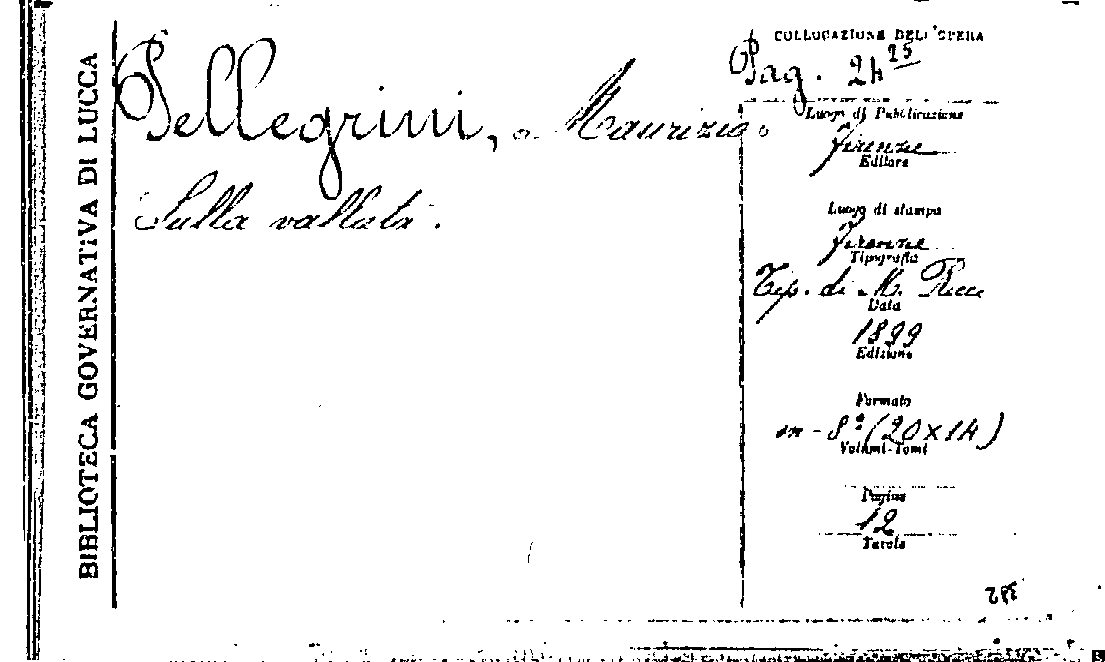 BIBLIOTECA GOVERNATIVA DI LUCCA
Pellegrini, Maurizio
Sulla vallata.
COLLOCAZIONE DELL'OPERA
Pag. 24 25
Luogo di Pubblicazione
Firenze
Editore
Luogo di stampa
Firenze
Tipografia
Tip. di M. Ricci
Data
1899
Edizione
Formato
in-8° (20×14)
Volumi-Tomi
Pagine
12
Tavole